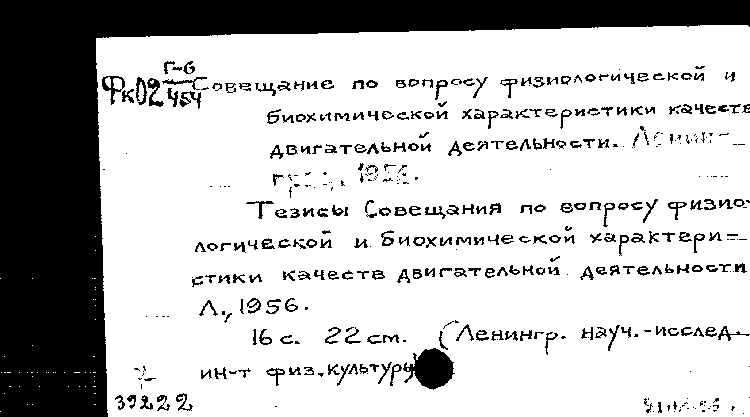 Г-6
ФкО2 454 Совещание по вопросу физиологической и
биохимической характеристики качеств
двигательной деятельности. Ленин-
град, 1956.
Тезисы Совещания по вопросу физио-
логической и биохимической характери=
стики качеств двигательной деятельности
Л., 1956.
16 с. 22 см. (Ленингр. науч.-исслед.
ин-т физ. культуры)
39222